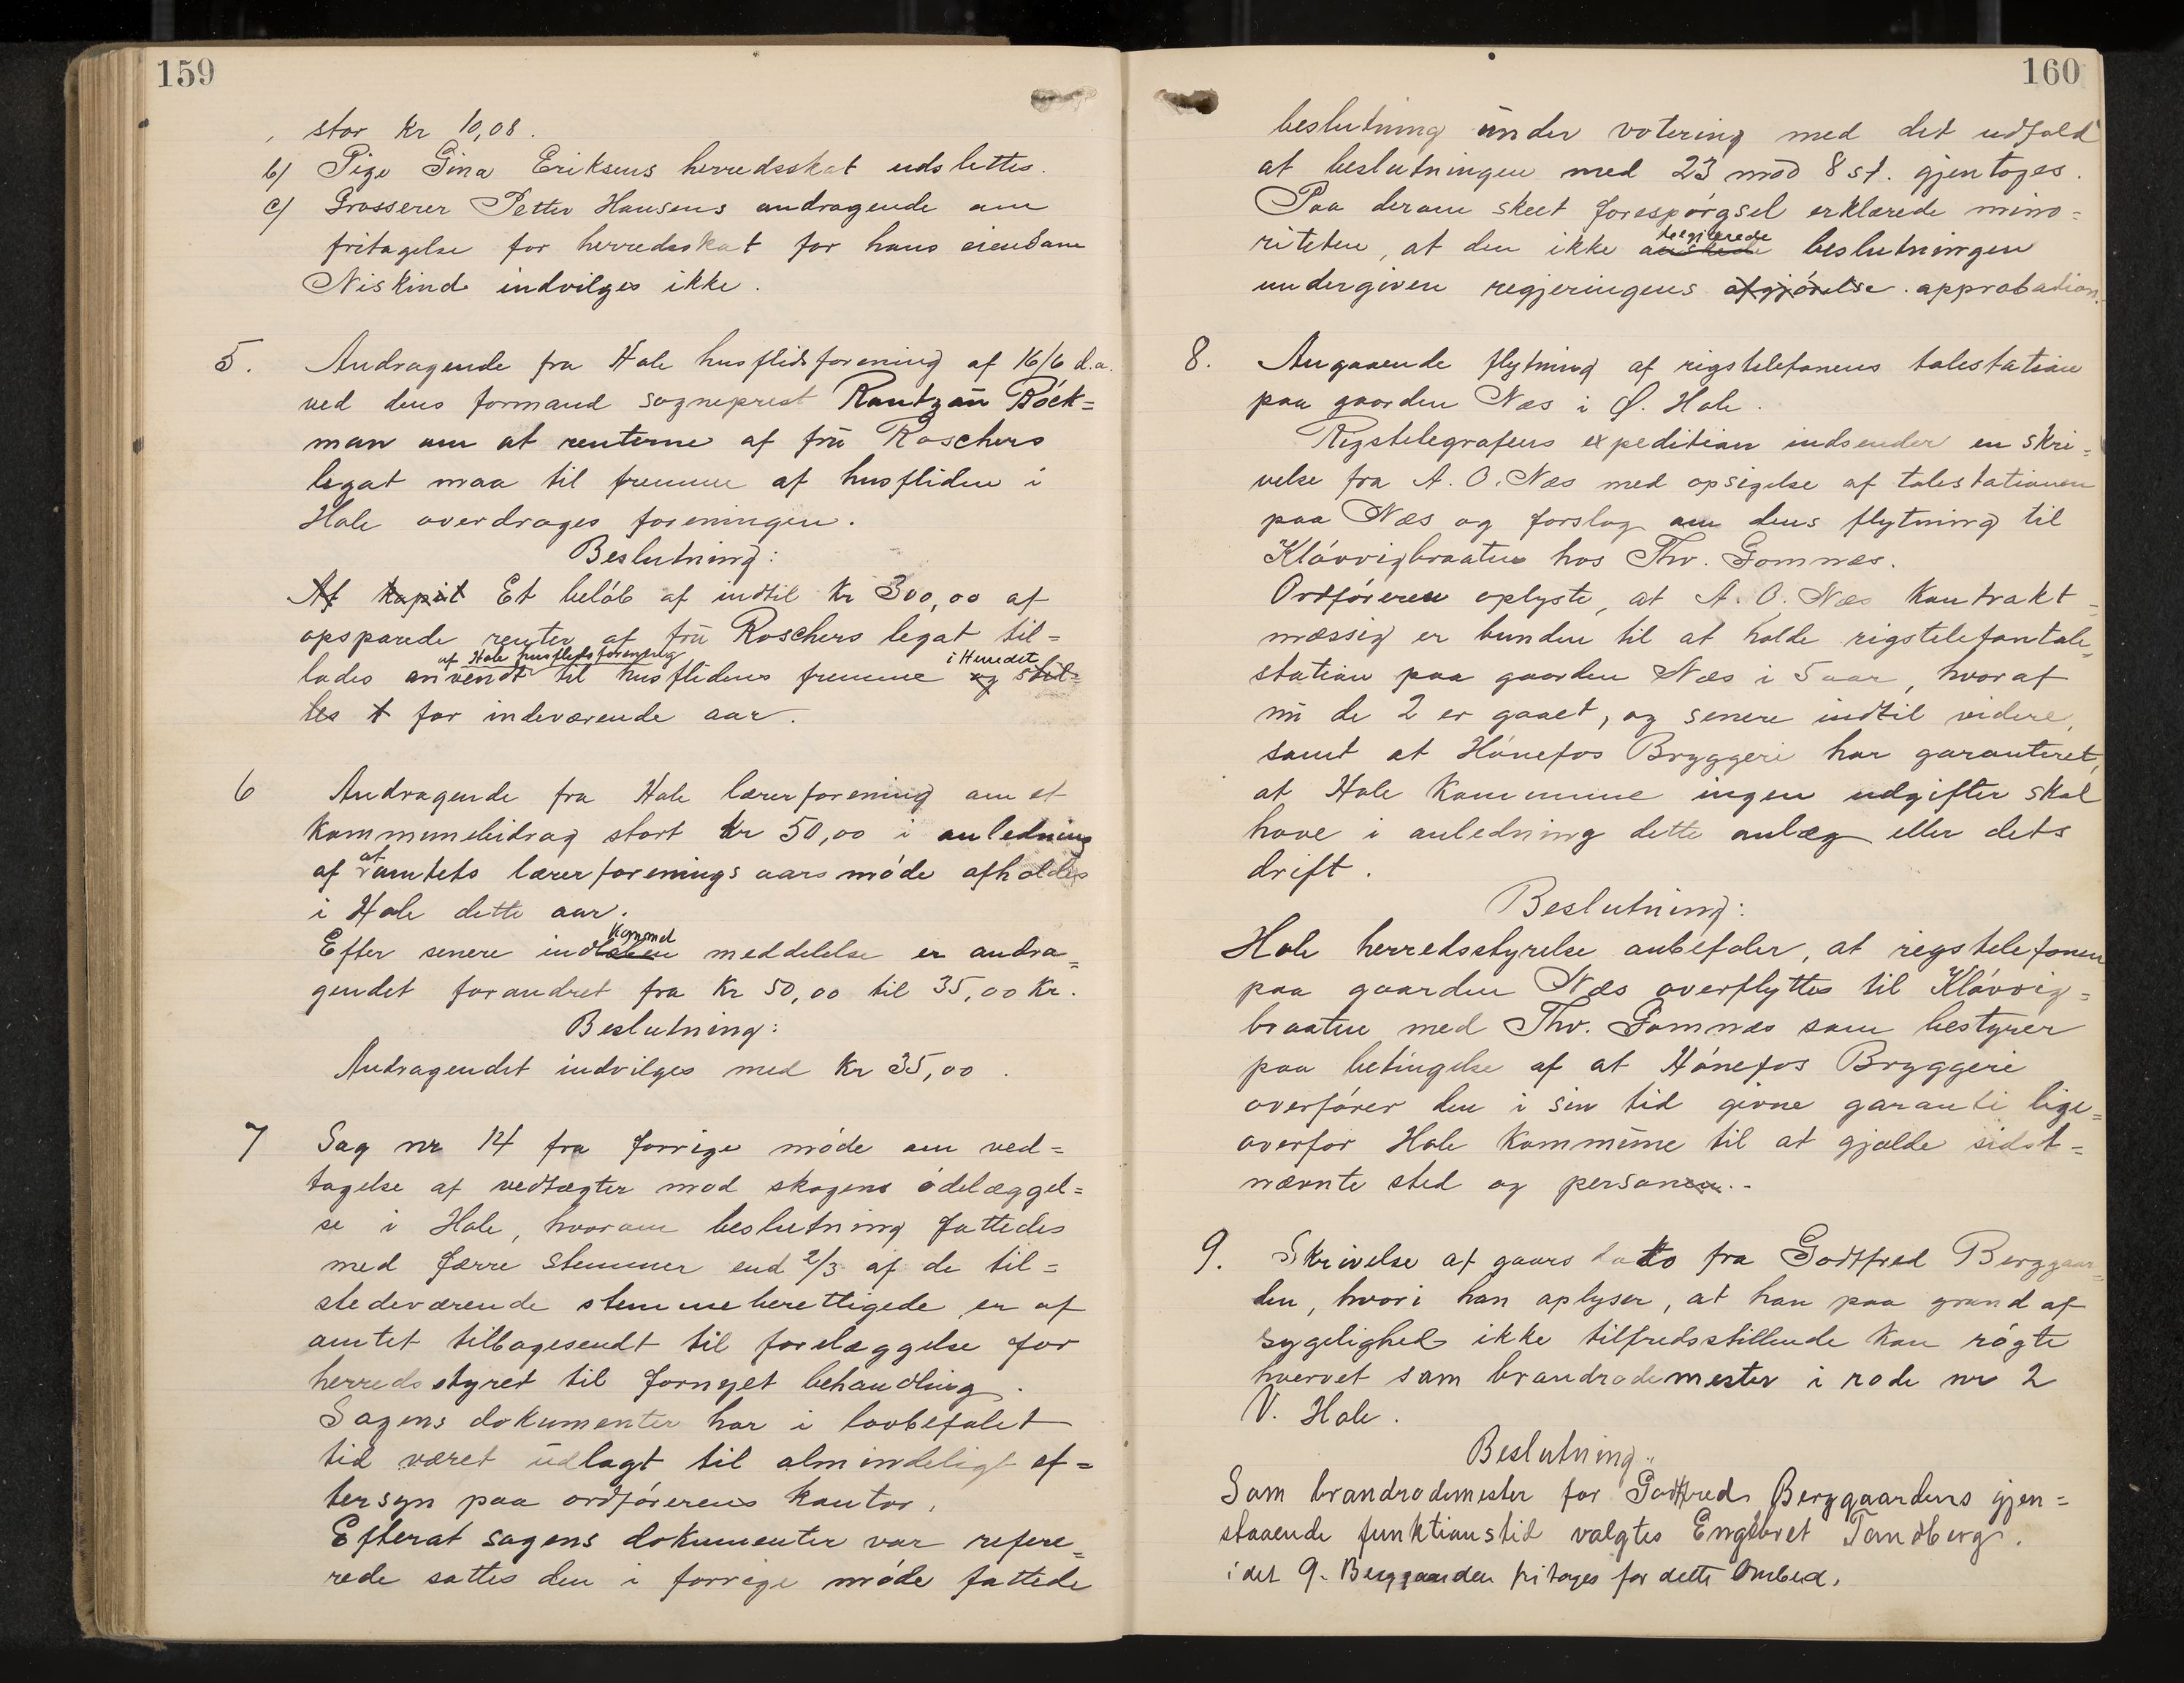 159
stor Kr 10,08.
b/ Pige Gina Eriksens herredsskat udslettes.
c/ Grosserer Petter Hansens andragende om
fritagelse for herredsskat for hans eiendom
Niskinds indvilges ikke.
5. Andragende fra Hole husflidsforening af 16/6 d.a.
ved dens formand sogneprest Rantzau Böck=
man om at renterne af fru Roschers
legat maa til fremme af husfliden i
Hole overdrages foreningen.
Beslutning:
Af kapit Et beløb af indtil Kr 300,00 af
opsparede renter af fru Roschers legat til=
af Hole husflidsforening i Herredet
lades anvendt til husflidens fremme og stil=
les t for indeværende aar.
6 Andragende fra Hole lærerforening om et
kommunebidrag stort Kr 50,00 i anledning
at
af amtets lærerforenings aarsmøde afholdes
i Hole dette aar.
kommet
Efter senere indløben meddelelse er andra=
gendet forandret fra Kr 50,00 til 35,00 Kr.
Beslutning:
Andragendet indvilges med Kr 35,00.
7 Sag nr 14 fra forrige møde om ved=
tagelse af vedtægter mod skogens ødelæggel=
se i Hole, hvorom beslutning fattedes
med færre stemmer end 2/3 af de til=
stedeværende stemmeberettigede er af
amtet tilbagesendt til forelæggelse for
herredsstyret til fornyet behandling.
Sagens dokumenter har i lovbefalet
tid været udlagt til almindeligt ef=
tersyn paa ordførerens kontor.
Efterat sagens dokumenter var refere=
rede sattes den i forrige møde fattede
160
beslutning under votering med det udfald
at beslutningen med 23 mod 8 st. gjentoges.
Paa derom skeet forespørgsel erklærede mino=
begjærede
riteten, at den ikke ønskede beslutningen
undergiven regjeringens afgjørelse. approbation.
8. Angaaende flytning af rigstelefonens talestation
paa gaarden Næs i Ø. Hole.
Rigstelegrafens expedition indsender en skri=
velse fra A. O. Næs med opsigelse af talestationen
paa Næs og forslag om dens flytning til
Kløvvigbraaten hos Thv. Gomnæs.
Ordføreren oplyste, at A. O. Næs kontrakt=
mæssig er bunden til at holde rigstelefontale=
station paa gaarden Næs i 5 aar, hvoraf
nu de 2 er gaaet, og senere indtil videre,
samt at Hønefos Bryggeri har garanteret,
at Hole Kommune ingen udgifter skal
have i anledning dette anlæg eller dets
drift.
Beslutning:
Hole herredsstyrelse anbefaler, at rigstelefonen
paa gaarden Næs overflyttes til Kløvvig=
braaten med Thv. Gomnæs som bestyrer
paa betingelse af at Hønefos Bryggeri
overfører den i sin tid givne garanti lige=
overfor Hole Kommune til at gjælde sidst=
nævnte sted og personen.-
9. Skrivelse af gaars dato fra Godtfred Berggaar=
den, hvori han oplyser, at han paa grund af
sygelighed ikke tilfredsstillende kan røgte
hvervet som brandrodemester i rode nr 2
V. Hole.
Beslutning:
Som brandrodemester for Godtfred Berggaardens gjen=
staaende funktionstid valgtes Englbret Tandberg.
idet G. Berggaarden fritages for dette Ombud.